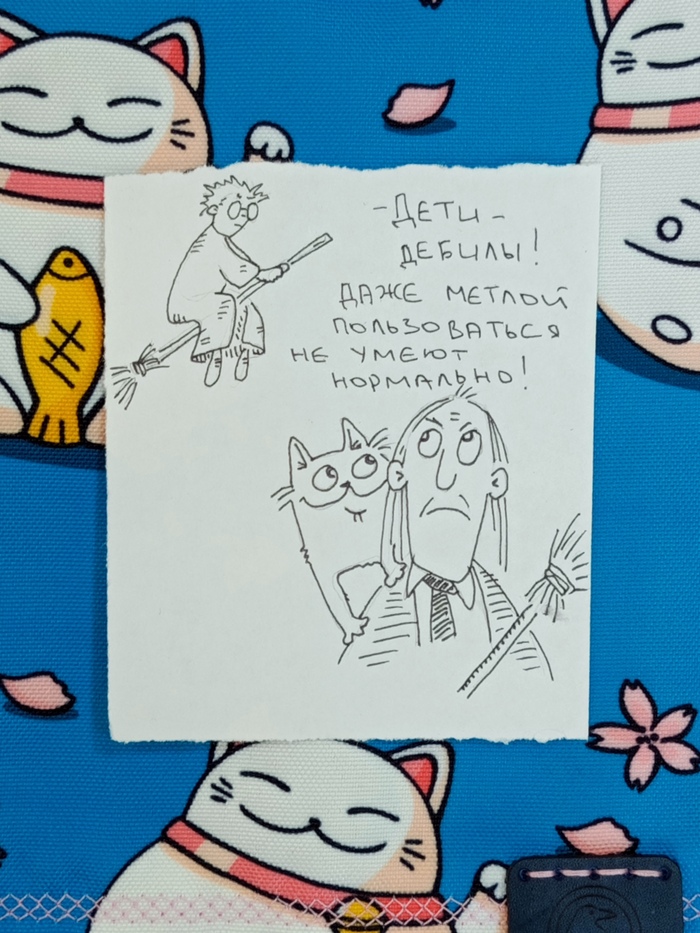 - ДЕТИ -
ДЕБИЛЫ!
ДАЖЕ МЕТЛОЙ
ПОЛЬЗОВАТЬСЯ
НЕ УМЕЮТ
НОРМАЛЬНО!